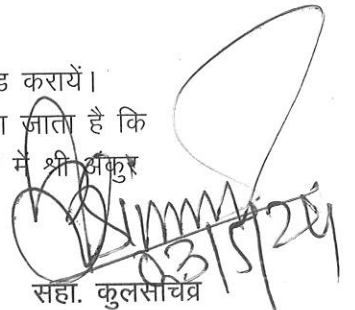 ड करायें।
ा जाता है कि
में श्री अंकुर
03/5/24
सहा. कुलसचिव